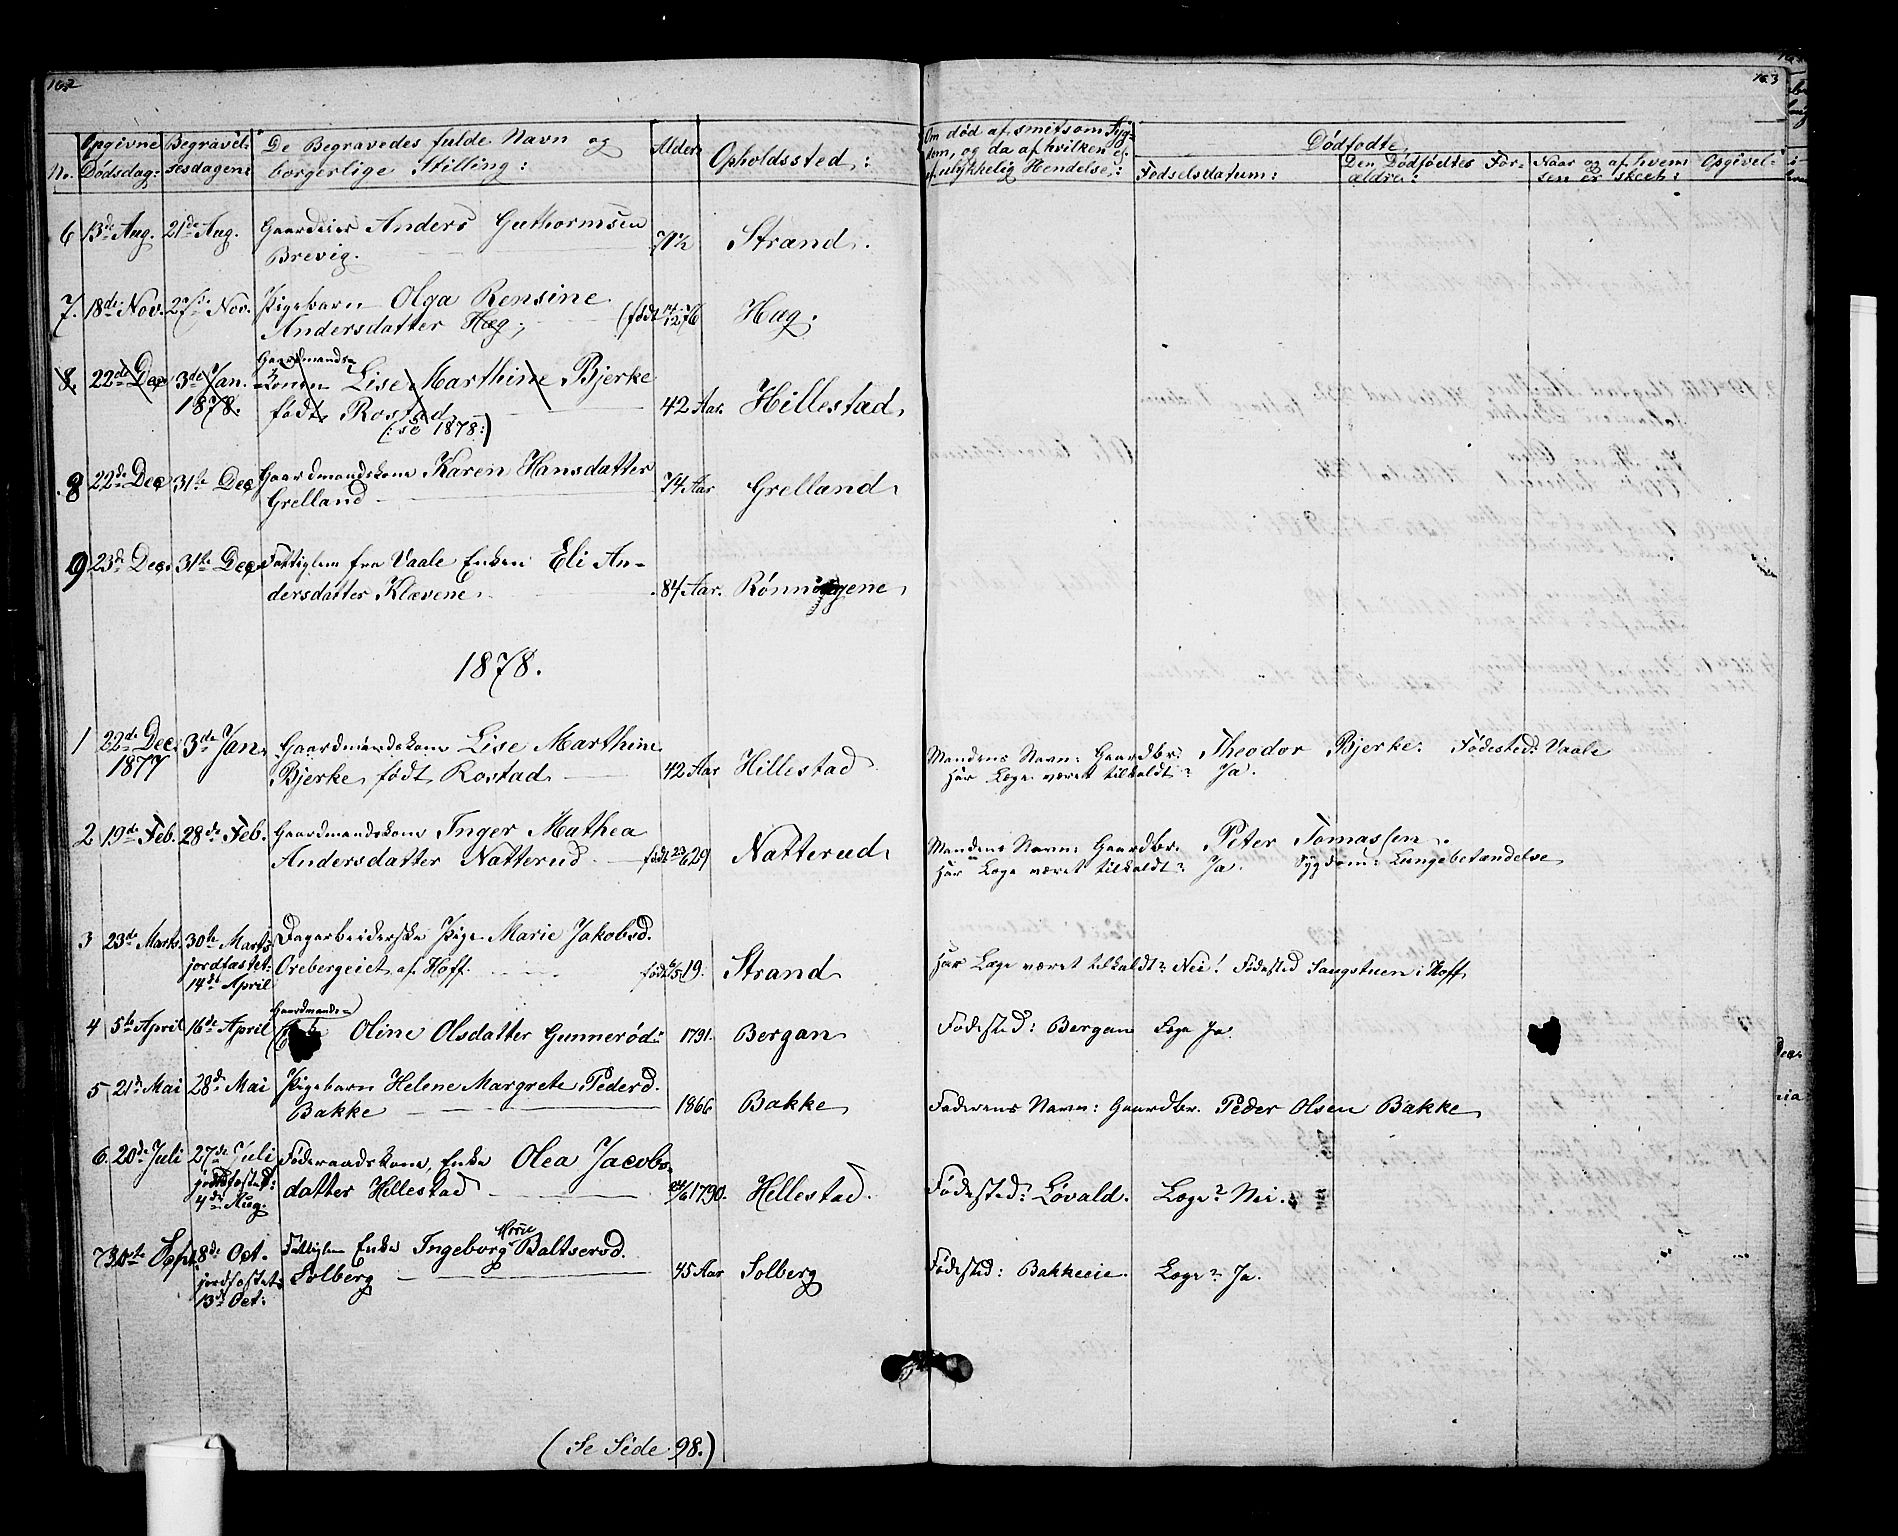 162
163
No. Opgivne Dødsdag: Begravelsesdagen: De Begravedes fulde Navn og borgerlige Stilling: Alder: Opholdssted: Om død af smitsom Sygdom, og da af hvilken el. af ulykkelig Hendelse: Dødfødte:
Fødselsdatum: Den Dødfødtes Forældre: Naar og af hvem Opgivelsen er skeet:
6 13de Aug. 21de Aug. Gaardeier Anders Guthormsen 71½ Strand.
Brevig.
7. 18de Nov. 27de Nov. Pigebarn Olga Rensine (født 14/12 76 Hag.
Andersdatter Hæg.
8. 22de Dec 3de Jan. Gaardmands-
1878. konen Lise Marthine Bjerke 42 Aar. Hillestad.
født Rostad
(: se 1878:)
8 22de Dec 31te Dec Gaardmandskone Karen Hansdatter 74 Aar Grelland.
Grelland
9 23de Dec. 31te Dec Fattiglem fra Vaale Enken Eli An-
dersdatter Klævene. 84 Aar.
1878.
1 22de Dec. 3de Jan. Gaardmandskone Lise Marthine
1877 Bjerke født Rostad 42 Aar Hillestad
Mandens Navn: Gaardbr. Theodor Bjerke. Fødested: Vaale
Har Læge været tilkaldt? Ja.
2 19de Feb. 28de Feb. Gaardmandskone Inger Mathea
Andersdatter Natterud. født 23/6 29 Natterud.
Mandens Navn: Gaardbr. Peter Tomassen.
Har Læge været tilkaldt? Ja. Sygdom: Lungebetændelse
3 23de Marts. 30te Marts Dagarbeiderske Pige Marie Jakobsd.
jordfæstet: Orebergeiet af Hoff. født 19. Strand
14de April
Har Læge været tilkaldt? Nei! Fødested Sangstuen i Hoff
4 5te April 16de April Gaardmands-
Oline Olsdatter Gunnerød 1791. Bergan
Fødested: Bergan Læge Ja.
5 21de Mai 28de Mai Pigebarn Helene Margrete Pedersd.
Bakke 1866 Bakke
Faderens Navn: Gaardbr. Peder Olsen Bakke
6. 20de Juli 27de Juli Føderaadskone, Enke Olea Jacobs-
jordfæstet: datter Hellestad 24/6 1790. Hellestad.
4de Aug.
Fødested: Løvald. Læge? Nei.
7 30te Sept. 8de Oct. Fattiglem Enke Ingeborg Marie Baltsersd.
jordfæstet Solberg 45 Aar Solberg
13de Oct:
Fødested: Bakkeeie. Læge? Ja.
(Se Side 98.)